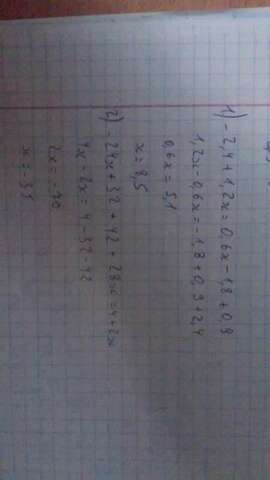 1) -2,4+1,2x=0,6x-1,8+0,9
1,2x-0,6x=-1,8+0,9+2,4
0,6x=5,1
x=8,5
2) -24x+32+42+28x=4+2x
4x-2x=4-32-42
2x=-70
x=-35